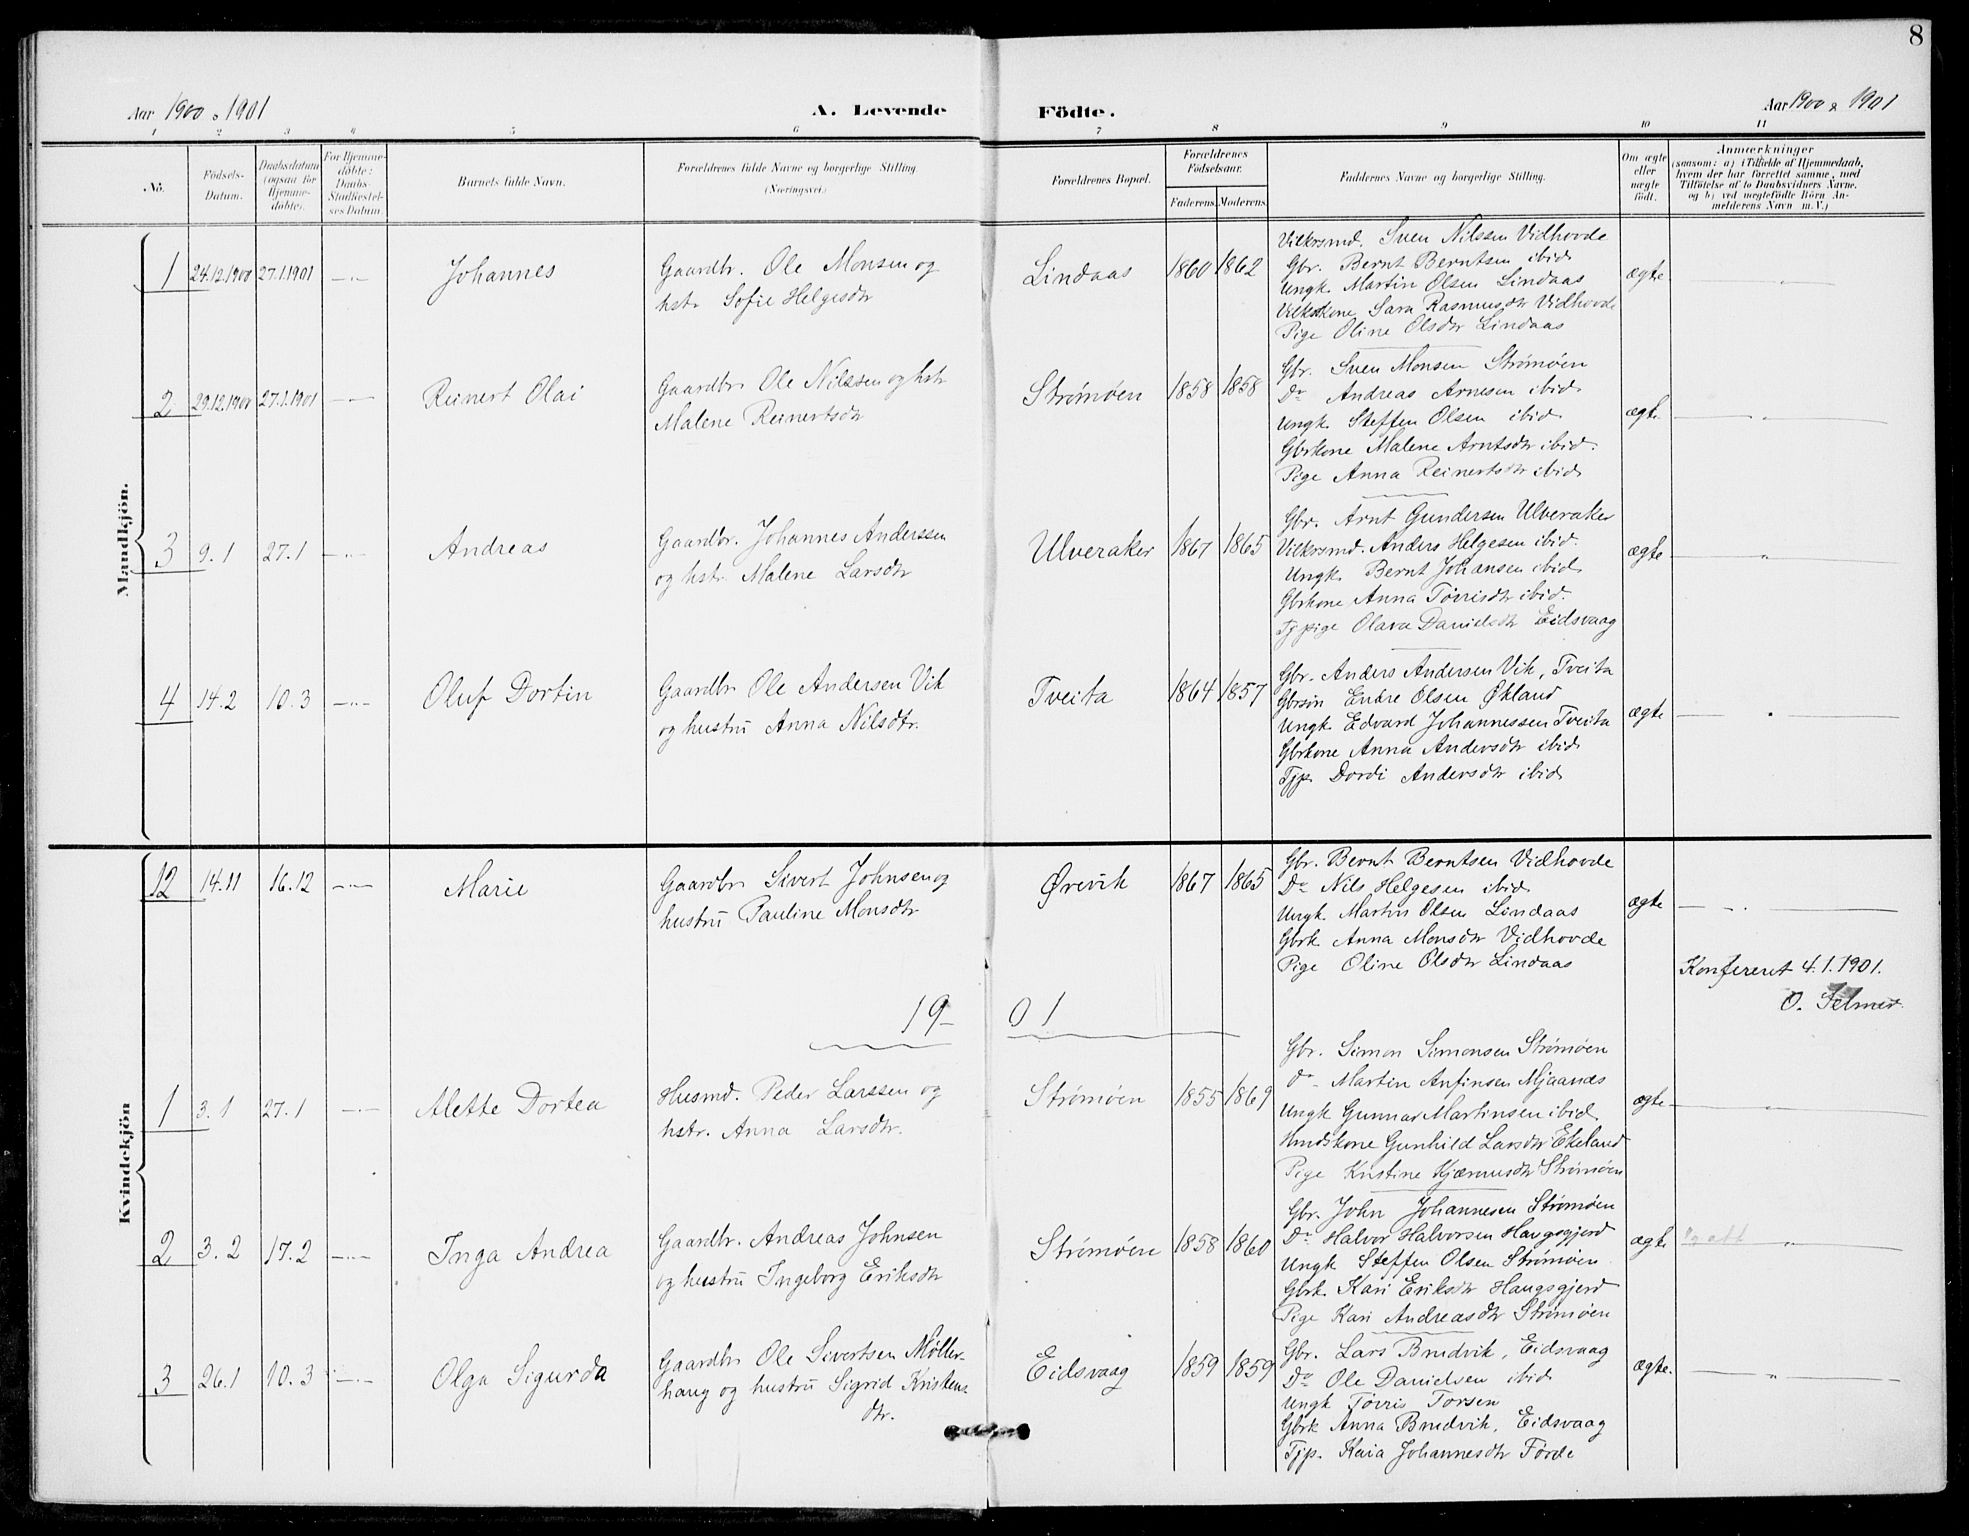 8
Aar 1900 o 1901 A. Levende Födte. Aar 1900 & 1901
1 2 3 4 5 6 7 8 9 10 11
No.
Födsels-
Datum.
Daabsdatum
(ogsaa for
Hjemme-
döbte).
For Hjemme-
döbte:
Daabs-
Stadfæstel-
ses Datum
Barnets fulde Navn.
Forældrenes fulde Navne og borgerlige Stilling
(Næringsvei.)
Forældrenes Bopæl.
Forældrenes
Födselsaar.
Faderens. Moderens.
Faddernes Navne og borgerlige Stilling.
Om ægte
eller
uægte
födt.
Anmærkninger
(saasom: a) i Tilfælde af Hjemmedaab,
hvem der har forrettet samme, med
Tilföielse af to Daabsvidners Navne.
og b) ved uægtefödte Börn An-
melderens Navn m. V.)
Mandkjön.
1 24.12.1900 27.1.1901 —„— Johannes
Gaardbr. Ole Monsen og
hstr Sofie Helgesdtr
Lindaas 1860 1862
Vilkrsmd. Sven Nilssen Vidhovde
Gbr. Bernt Berntsen ibid
Ungk. Martin Olsen Lindaas
Vilkrskone Sara Rasmusdtr Vidhovde
Pige Oline Olsdtr Lindaas
ægte „
2 29.12.1900 27.1.1901 —„— Reinert Olai
Gaardbr Ole Nilssen og hstr
Malene Reinertsdtr
Strømøen 1858 1858
Gbr. Sven Monsen Strømøen
Do Andreas Arnesen ibid
Ungk. Steffen Olsen ibid
Gbrkone Malene Arntsdtr ibid.
Pige Anna Reinertsdtr ibid
ægte „
3 9.1 27.1 —„— Andreas
Gaardbr. Johannes Anderssen
og hstr. Malene Larsdtr
Ulveraker 1867 1865
Gbr. Arnt Gundersen Ulveraker
Vilkrsmd. Anders Helgesen ibid.
Ungk. Bernt Johansen ibid
Gbrkone Anna Tørrisdtr ibid.
Tjpige Olava Danielsdtr Eidsvaag
ægte „
4 14.2 10.3 —„— Oluf Dortin
Gaardbr Ole Andersen Vik
og hustru Anna Nilsdtr.
Tveita 1864 1857
Gbr. Anders Andersen Vik, Tveita
Gbrsøn Endre Olsen Økland
Ungk Edvard Johannessen Tveita
Gbrkone Anna Andersdtr ibid
Tjp. Dordi Andersdtr ibid
ægte „
Kvindekjön
12 14.11 16.12 —„— Marie
Gaardbr Sivert Johnsen og
hustru Pauline Monsdtr
Ørevik 1867 1865
Gbr. Bernt Berntsen Vidhovde
Do Nils Helgesen ibid
Ungk. Martin Olsen Lindaas
Gbrk. Anna Monsdtr Vidhovde
Pige Oline Olsdtr Lindaas
ægte „
Konfereret 4.1.1901.
O. Selmer
19 01
1 3.1 27.1 —„— Alette Dortea
Husmd. Peder Larssen og
hstr. Anna Larsdtr.
Strømøen 1855 1869
Gbr. Simon Simonsen Strømøen
do Martin Anfinsen Mjaanes
Ungk Gunnar Martinsen ibid
Hmdskone Gunhild Larsdtr Ekeland
Pige Kristine Strømøen
ægte „
2 3.2 17.2 —„— Inga Andrea
Gaardbr. Andreas Johnsen
og hustru Ingeborg Eriksdtr
Strømøen 1858 1860
Gbr. John Johannesen Strømøen
Do Halvor Halvorsen Haugsgjerd
Ungk Steffen Olsen Strømøen
Gbrk. Kari Eriksdtr Haugsgjerd
Pige Kari Andreasdtr Strømøen
ægte „
3 26.1 10.3 —„— Olga Sigurda
Gaardbr Ole Sivertsen Møller-
haug og hustru Sigrid Kristens
dtr.
Eidsvaag 1859 1859
Gbr. Lars Brudvik, Eidsvaag
Do Ole Danielsen ibid
Ungk Tørris Torsen
Gbrk Anna Brudvik, Eidsvaag
Tjp. Kaia Johannesdtr Førde
ægte. „